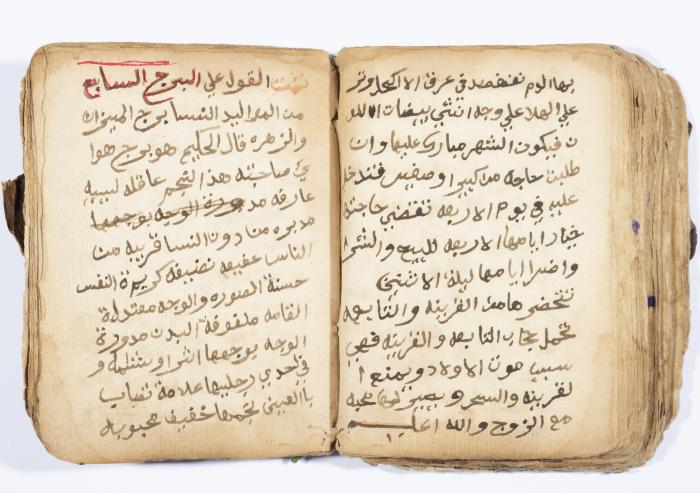 بها الدم تفتصد في عرق الاكحل وتر
علي الهلا علي وجه انثي بيضات اللو
ن فيكون الشهر مبارك عليها وان
طلبت حاجه من كبير او صغير فتدخل
عليه في يوم الاربعه تقضي حاجته
خيار ايامها الاربعه للبيع والشرا
واضر ايامها ليلة الاثنين
تتحضر هامت القرينه والتابعه
تحمل حجاب التابعه والقرينه فهي
سبب موت الاولاد ويمنع ا
لقرينه والسحر و محبه
مع الزوج والله اعلم
تمت القول علي البرج السابع
من المواليد النسا برج الميزان
والزهره قال الحكيم هو برج هوا
ئي صاحبته هذا النجم عاقله لبيبه
عارفه مدورة الوجه بوجهها
مدبره من دون النسا قريبه من
الناس عفيفه نضيفه كريمة النفس
حسنة الصوره والوجه معتدلة
القامه ملفوفة البدن مدورة
الوجه بوجهها اثر او شامه و
في احدي رجليها علامة تصاب
بالعين نجمها خفيف محبوبه